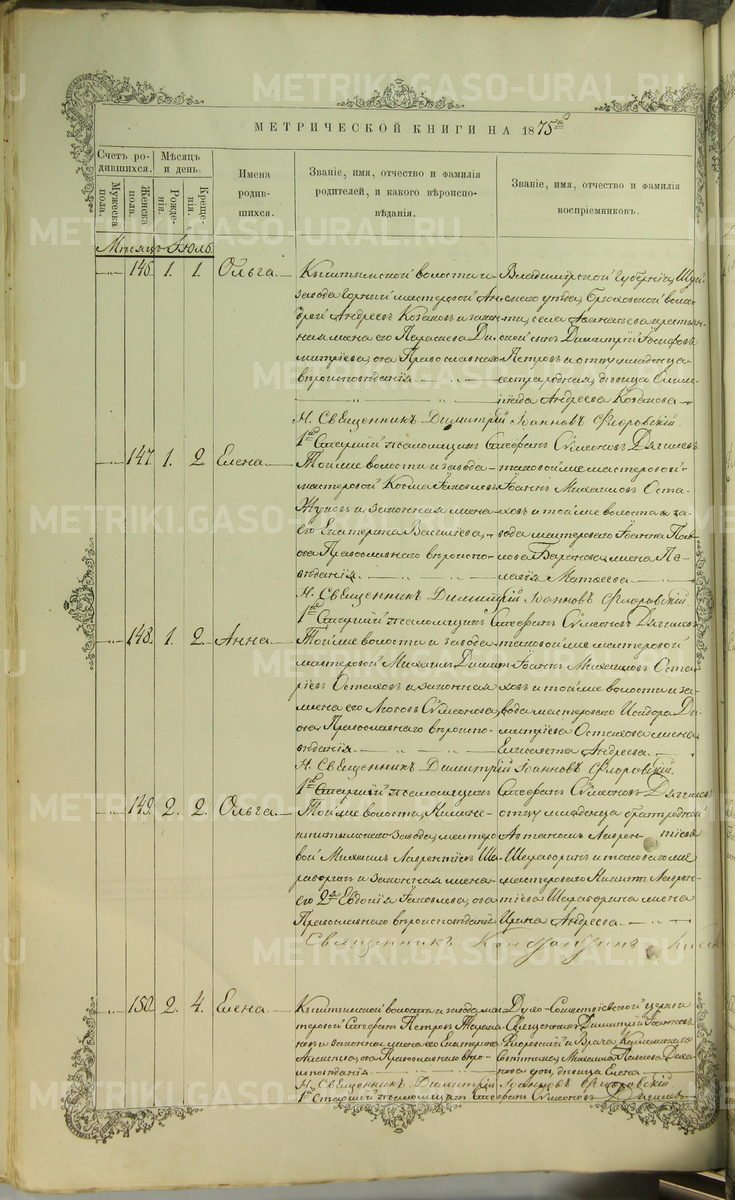 METRIKI.GASO-URAL.RU
МЕТРИЧЕСКОЙ КНИГИ НА 1875й
Счетъ родившихся.
Мужеска пола.
Женска пола.
Мѣсяцъ и день.
Рожденія.
Крещенія.
Имена родившихся.
Званіе, имя, отчество и фамилія родителей, и какого вѣроисповѣданія.
Званіе, имя, отчество и фамилія воспріемниковъ.
Мѣсяцъ Іюль.
146. 1. 1. Ольга
Кыштымской волости и
завода горный мастеровой Ан-
дрей Андреевъ Козаковъ и закон-
ная жена его Параскева Ди-
митріева, оба Православнаго
вѣроисповѣданія
Владимірской Губерніи, Шуй-
скаго уѣзда, волос-
ти, села Аѳанасьева крестьян-
скій сынъ Димитрій Іосифовъ
Петровъ и отцу младенца
сестра родная, дѣвица Олим-
піада Андреева Козакова
Н. Священникъ Димитрій Іоанновъ Флоровскій.
1й Старшій псаломщикъ Стефанъ Сѵмеоновъ Дягилевъ
147. 1. 2. Елена
Той же волости и завода
мастеровой Косма Іаковлевъ
и законная жена
его Екатерина Василіева,
оба Православнаго вѣроиспо-
вѣданія.
таковой же мастеровой
Іоаннъ Михаиловъ Оста-
ховъ и той же волости и за-
вода мастероваго Іоанна Пав-
лова жена Пе-
лагія Матѳеева
Н. Священникъ Димитрій Іоанновъ Флоровскій
1й Старшій псаломщикъ Стефанъ Сѵмеоновъ Дягилевъ
148. 1. 2. Анна
Той же волости и завода
мастеровой Михаилъ Димит-
ріевъ Остаховъ и законная
жена его Любовь Сѵмеонова,
оба Православнаго вѣроиспо-
вѣданія.
таковой же мастеровой
Іоаннъ Михаиловъ Оста-
ховъ и той же волости и за-
вода мастероваго Исидора Ди-
митріева Остахова жена
Елисавета Андреева.
Н. Священникъ Димитрій Іоанновъ Флоровскій.
1й Старшій псаломщикъ Стефанъ Сѵмеоновъ Дягилевъ
149. 2. 2. Ольга
Той же волости, Нижне-
кыштымскаго завода, мастеро-
вой Михаилъ Лаврентіевъ Ша-
раборинъ и законная жена
его 2я Евдокія Іаковлева, оба
Православнаго вѣроисповѣданія
отцу младенца братъ родной
Лаврентіевъ
Шараборинъ и таковаго же
мастероваго Никиты Лаврен-
тіева Шараборина жена
Ирина Андреева
Священникъ Константинъ
150. 2. 4. Елена
Кыштымской волости и завода мас-
теровой Стефанъ Петровъ
и законная жена его Екатерина
оба Православнаго вѣро-
исповѣданія
Духо-Сошествіевской церкви
Священникъ Димитрій Іоанновъ
Флоровскій и Врача Коллежскаго
Совѣтника Михаила Павлова
дочь, дѣвица Елена
Н. Священникъ Димитрій Іоанновъ Флоровскій
1й Старшій псаломщикъ Стефанъ Сѵмеоновъ Дягилевъ